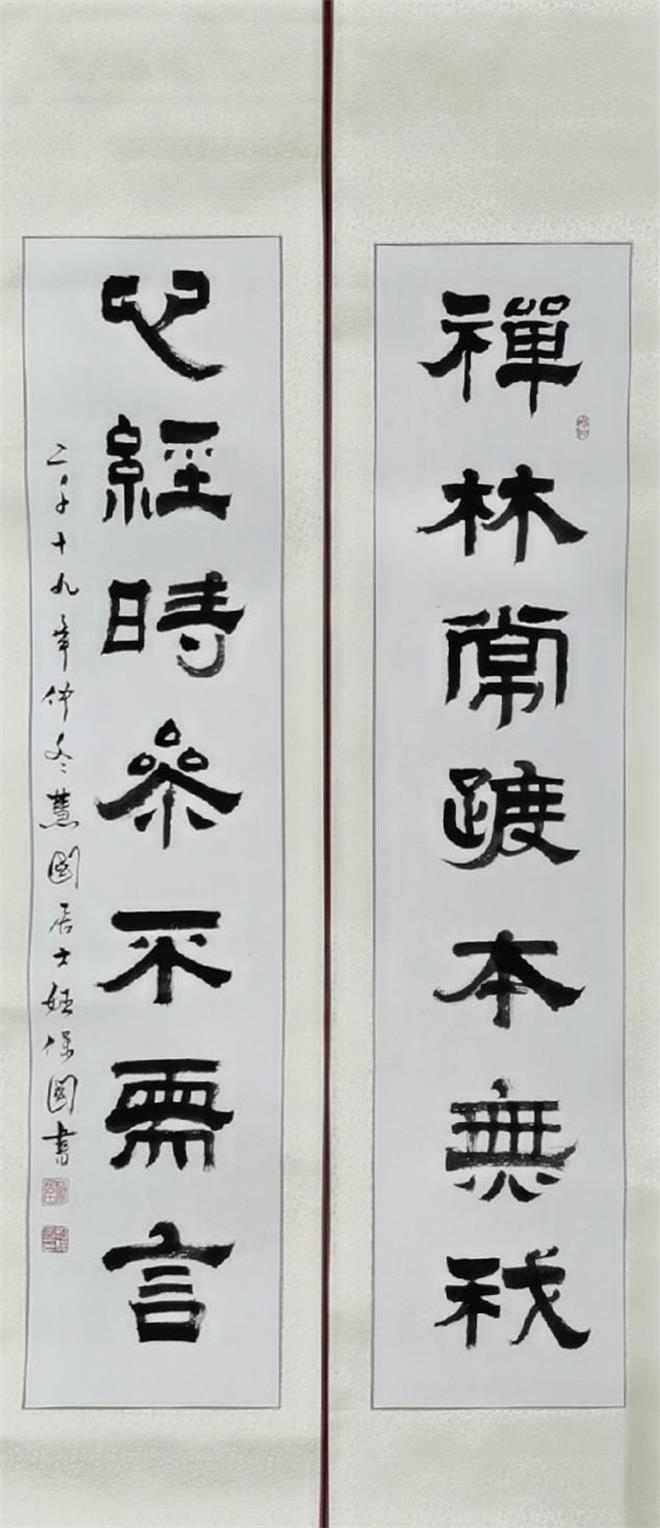 禪林常踱本無我
心經時參不需言
二〇一九年仲冬慧國居士姬保國書